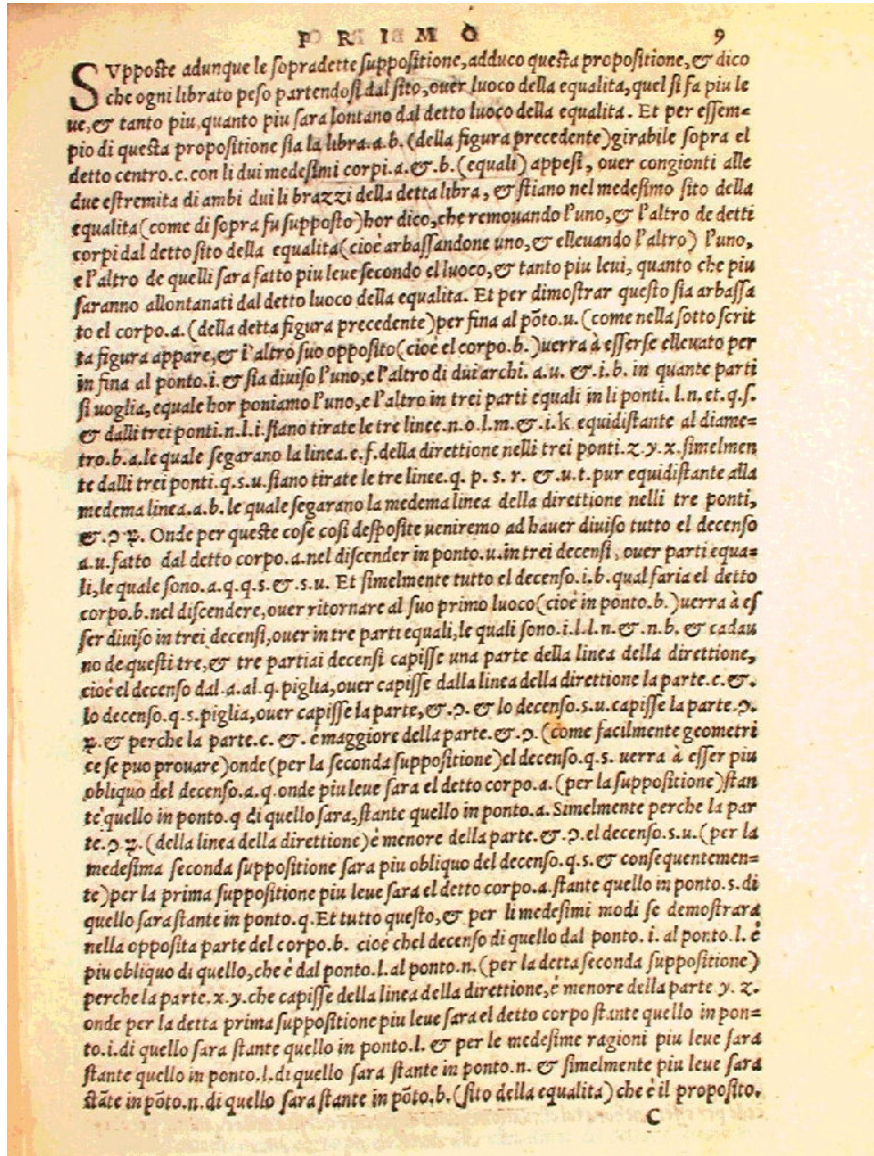 P R I M O 9
SVpposte adunque le sopradette suppositione, adduco questa propositione, & dico
che ogni librato peso partendosi dal sito, ouer luoco della equalita, quel si fa piu le
ue, & tanto piu, quanto piu sara lontano dal detto luoco della equalita. Et per essem-
pio di questa propositione sia la libra.a.b.(della figura precedente)girabile sopra el
detto centro.c.con li dui medesimi corpi.a.&.b.(equali) appesi, ouer congionti alle
due estremita di ambi dui li brazzi della detta libra, & stiano nel medesimo sito della
equalita(come di sopra fu supposto)hor dico, che remouando l'uno, & l'altro de detti
corpi dal detto sito della equalita(cioè arbassandone uno, & elleuando l'altro) l'uno,
e l'altro de quelli sara fatto piu leue secondo el luoco, & tanto piu leui, quanto che piu
saranno allontanati dal detto luoco della equalita. Et per dimostrar questo sia arbassa
to el corpo.a.(della detta figura precedente)per fina al põto.u.(come nella sotto scrit
ta figura appare, & l'altro suo opposito(cioè el corpo.b.)uerra à esserse elleuato per
in fina al ponto.i.& sia diuiso l'uno, e l'altro di dui archi. a.u. &.i.b. in quante parti
si uoglia, equale hor poniamo l'uno, e l'altro in trei parti equali in li ponti. l.n.et.q.s.
& dalli trei ponti.n.l.i.stano tirate le tre linee.n.o.l.m.&.i.k equidistante al diame-
tro.b.a.le quale segarano la linea.e.f.della direttione nelli trei ponti.z.y.x.simelmen
te dalli trei ponti.q.s.u.stano tirate le tre linee.q. p. s. r. &.u.t.pur equidistante alla
medema linea.a.b. le quale segarano la medema linea della direttione nelli tre ponti,
&.ↄ.ꝝ. Onde per queste cose cosi desposite ueniremo ad hauer diuiso tutto el decenso
a.u.fatto dal detto corpo.a.nel discender in ponto.u.in trei decensi, ouer parti equa=
li, le quale sono.a.q.q.s.&.s.u. Et simelmente tutto el decenso.i.b.qual faria el detto
corpo.b.nel discendere, ouer ritornare al suo primo luoco(cioè in ponto.b.)uerra à es
ser diuiso in trei decensi, ouer in tre parti equali, le quali sono.i.l.l.n.&.n.b. & cadau
no de questi tre, & tre partiai decensi capisse una parte della linea della direttione,
cioè el decenso dal.a.al q.piglia, ouer capisse dalla linea della direttione la parte.c.&.
lo decenso.q.s.piglia, ouer capisse la parte, &.ↄ. & lo decenso.s.u.capisse la parte.ↄ.
ꝝ.& perche la parte.c. &. è maggiore della parte.&.ↄ.(come facilmente geometri
ce se puo prouare)onde(per la seconda suppositione)el decenso.q.s. uerra à esser piu
obliquo del decenso.a.q.onde piu leue sara el detto corpo.a.(per la suppositione)stan
te quello in ponto.q di quello sara, stante quello in ponto.a. Simelmente perche la par
te.ↄ.ꝝ.(della linea della direttione)è menore della parte.&.ↄ.el decenso.s.u.(per la
medesima seconda suppositione sara piu obliquo del decenso.q.s.& consequentemen=
te)per la prima suppositione piu leue sara el detto corpo.a.stante quello in ponto.s.di
quello sara stante in ponto.q.Et tutto questo, & per li medesimi modi se demostrara
nella opposita parte del corpo.b. cioè chel decenso di quello dal ponto.i.al ponto.l. è
piu obliquo di quello, che è dal ponto.l.al ponto.n.(per la detta seconda suppositione)
perche la parte.x.y.che capisse della linea della direttione, è menore della parte y. z.
onde per la detta prima suppositione piu leue sara el detto corpo stante quello in pon-
to.i.di quello sara stante quello in ponto.l. & per le medesime ragioni piu leue sara
stante quello in ponto.l.di quello sara stante in ponto.n. & simelmente piu leue sara
stãte in põto.n.di quello sara stante in põto.b.(sito della equalita) che è il proposito.
C